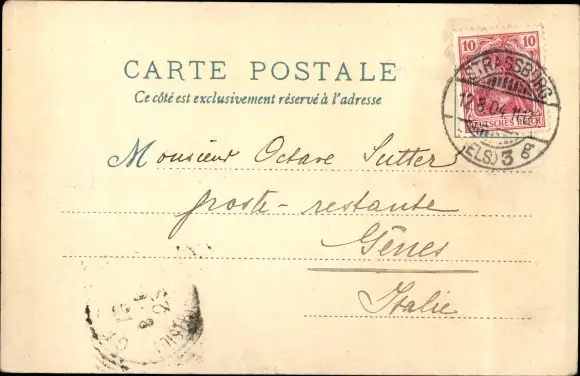 10 10
DEUTSCHES REICH
STRASSBURG
12.8.04.11-12
(ELS.) 3 g
CARTE POSTALE
Ce côté est exclusivement réservé à l'adresse
Monsieur Octave Sutter
poste-restante
Gênes
Italie